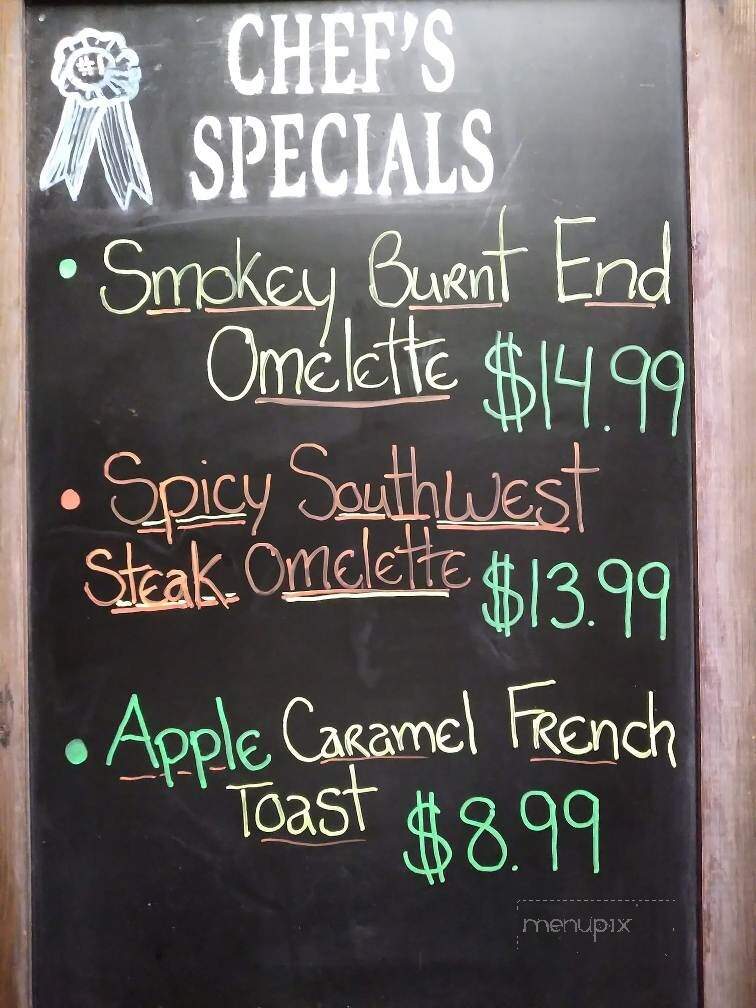 #1
CHEF'S
SPECIALS
• Smokey Burnt End
Omelette $14.99
• Spicy Southwest
Steak Omelette $13.99
• Apple Caramel French
Toast $8.99
menupix